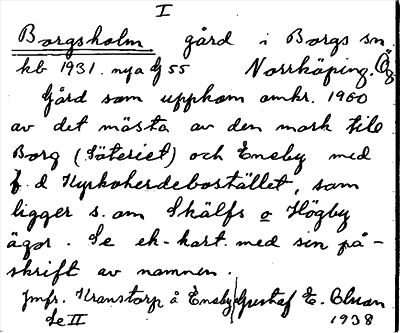 I
Borgsholm gård i Borgs sn.
kb 1931. nya G 55 Norrköping. Ög.
Gård som uppkom omkr. 1900
av det mästa av den mark till
Borg (Säteriet) och Eneby med
f. d Kyrkoherdebostället, som
ligger s. om Skälfs o Högby
ägor. Se ek-kart. med sin på-
skrift av namnen.
Jmfr. Kranstorp å Eneby Gustaf E. Olsson
Se II 1938